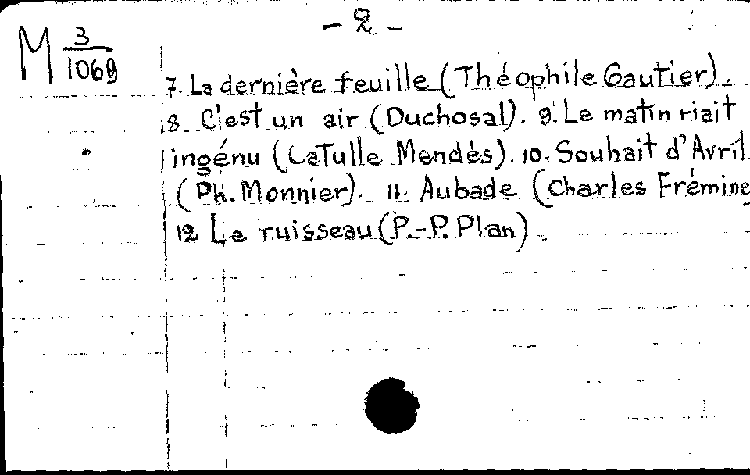 - 2 -
M 3/1069
7. La dernière feuille (Théophile Gautier).
8. C'est un air (Duchosal). 9. Le matin riait
ingénu (Catulle Mendès). 10. Souhait d'Avril
(Ph. Monnier). 11. Aubade (Charles Frémine
12 Le ruisseau (P.-P. Plan).